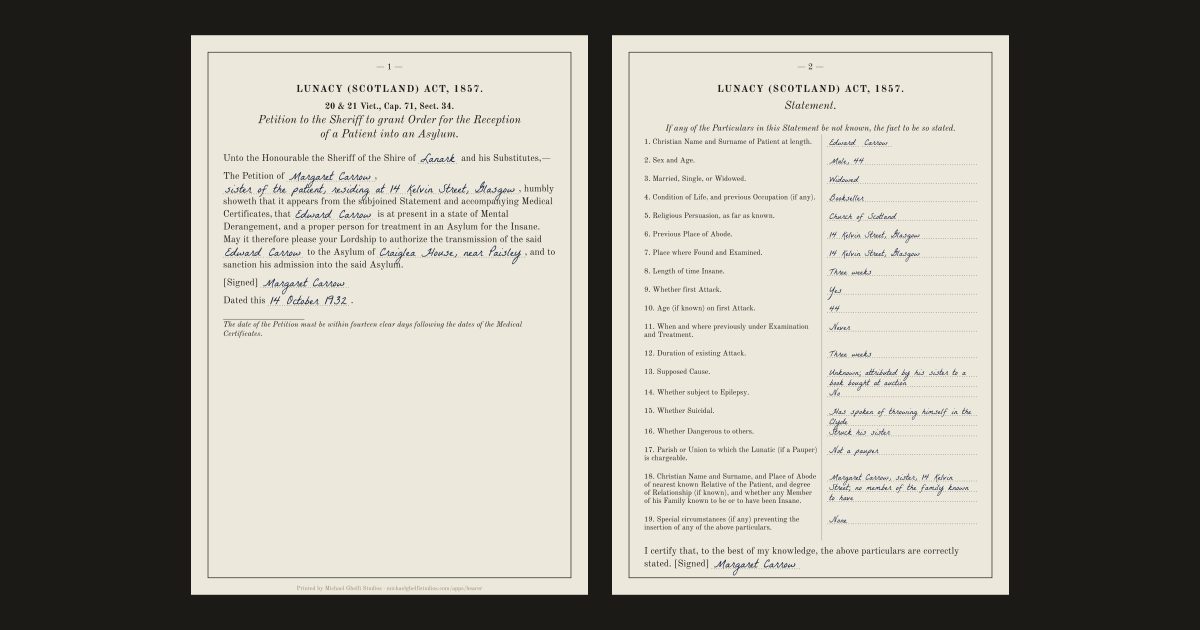 — 1 —
LUNACY (SCOTLAND) ACT, 1857.
20 & 21 Vict., Cap. 71, Sect. 34.
Petition to the Sheriff to grant Order for the Reception
of a Patient into an Asylum.
Unto the Honourable the Sheriff of the Shire of Lanark and his Substitutes,—
The Petition of Margaret Carrow,
sister of the patient, residing at 14 Kelvin Street, Glasgow, humbly
showeth that it appears from the subjoined Statement and accompanying Medical
Certificates, that Edward Carrow is at present in a state of Mental
Derangement, and a proper person for treatment in an Asylum for the Insane.
May it therefore please your Lordship to authorize the transmission of the said
Edward Carrow to the Asylum of Craiglea House, near Paisley, and to
sanction his admission into the said Asylum.
[Signed] Margaret Carrow
Dated this 14 October 1932.
The date of the Petition must be within fourteen clear days following the dates of the Medical
Certificates.
Printed by Michael Ghelfi Studios · michaelghelfistudios.com/apps/bearer
— 2 —
LUNACY (SCOTLAND) ACT, 1857.
Statement.
If any of the Particulars in this Statement be not known, the fact to be so stated.
1. Christian Name and Surname of Patient at length. Edward Carrow
2. Sex and Age. Male, 44
3. Married, Single, or Widowed. Widowed
4. Condition of Life, and previous Occupation (if any). Bookseller
5. Religious Persuasion, as far as known. Church of Scotland
6. Previous Place of Abode. 14 Kelvin Street, Glasgow
7. Place where Found and Examined. 14 Kelvin Street, Glasgow
8. Length of time Insane. Three weeks
9. Whether first Attack. Yes
10. Age (if known) on first Attack. 44
11. When and where previously under Examination Never
and Treatment.
12. Duration of existing Attack. Three weeks
13. Supposed Cause. Unknown; attributed by his sister to a
book bought at auction
14. Whether subject to Epilepsy. No
15. Whether Suicidal. Has spoken of throwing himself in the
Clyde
16. Whether Dangerous to others. Struck his sister
17. Parish or Union to which the Lunatic (if a Pauper) Not a pauper
is chargeable.
18. Christian Name and Surname, and Place of Abode Margaret Carrow, sister, 14 Kelvin
of nearest known Relative of the Patient, and degree Street; no member of the family known
of Relationship (if known), and whether any Member to have
of his Family known to be or to have been Insane.
19. Special circumstances (if any) preventing the None
insertion of any of the above particulars.
I certify that, to the best of my knowledge, the above particulars are correctly
stated. [Signed] Margaret Carrow